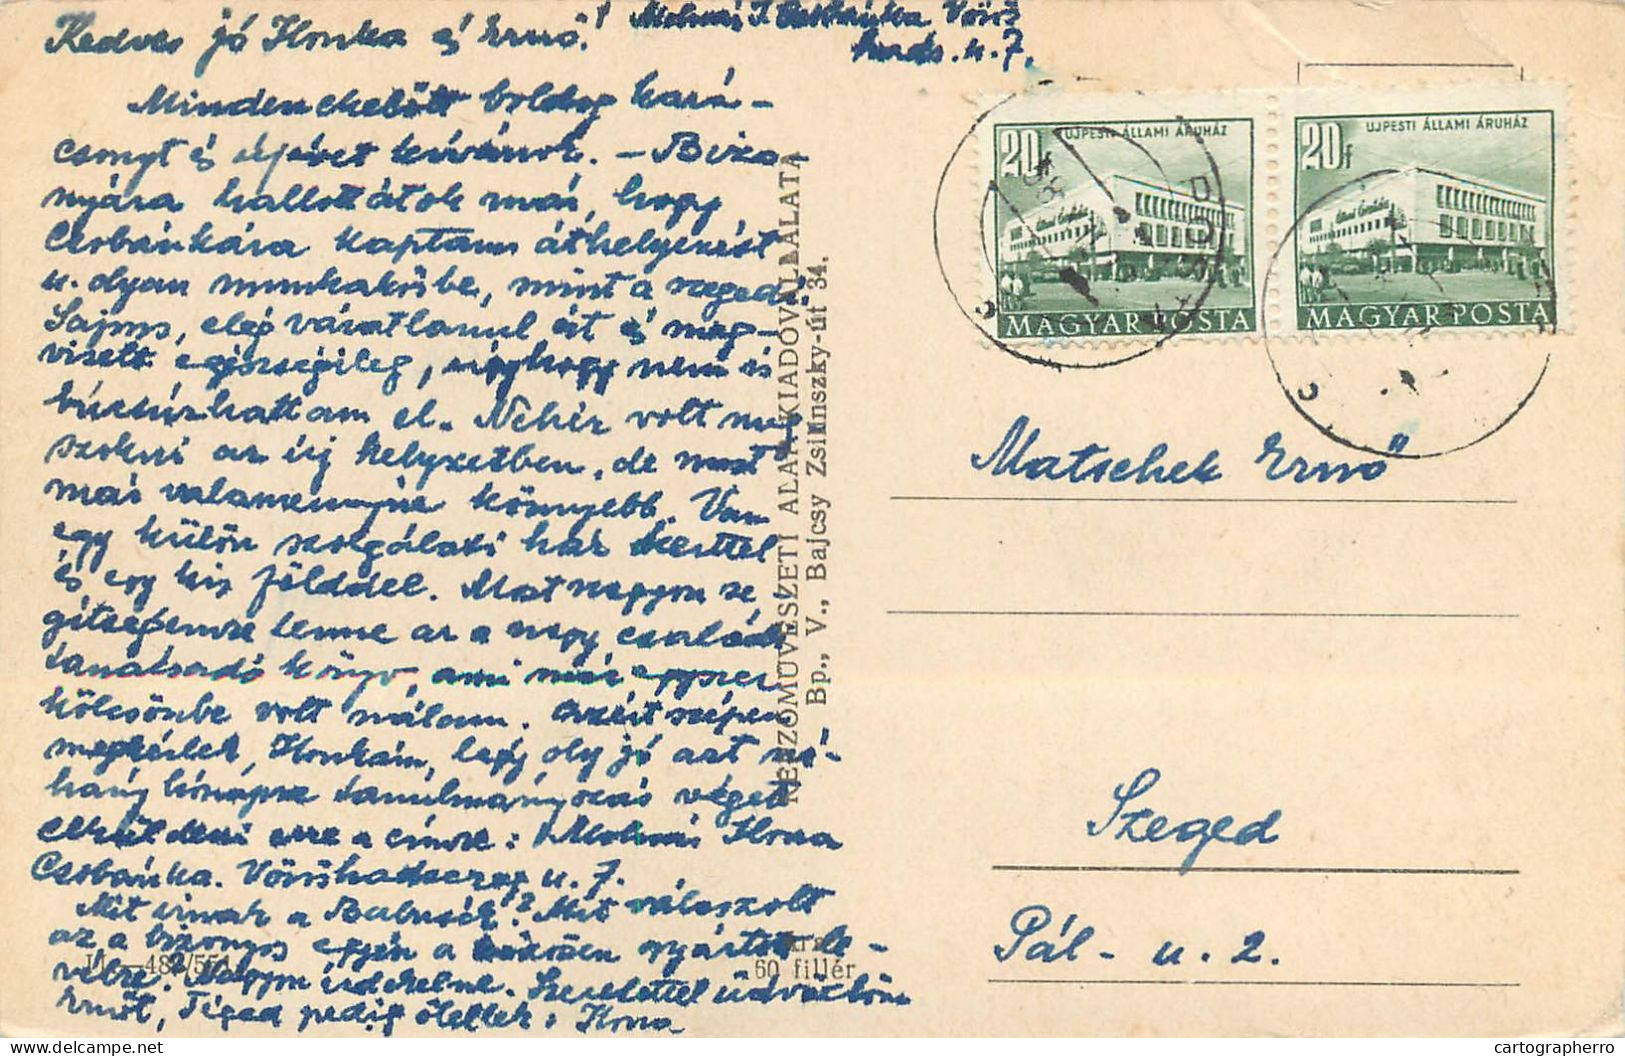 Molnár I. Csobánka Vörös
hads. u. 7.
Kedves jó Ilonka és Ernő!
Mindenekelőtt boldog kará-
csonyt és újévet kívánok. – Bizo-
nyára hallottátok már, hogy
Csobánkára kaptam áthelyezést
u. olyan munkakörbe, mint a szegedi.
Sajnos, elég váratlanul ért és meg-
viselt egészségileg, úgyhogy nem is
búcsúzhattam el. Nehéz volt meg-
szokni az új helyzetben, de most
már valamennyire könnyebb. Van
egy külön szolgálati ház kerttel
és egy kis földdel. Most nagyon se-
gítségemre lenne az a nagy családi
tanácsadó könyv, ami már egyszer
kölcsönbe volt nálam. Azért szépen
megkérlek, Ilonkám, légy oly jó azt né-
hány hónapra tanulmányozás végett
elküldeni erre a címre: Molnár Ilona
Csobánka. Vöröshadsereg u. 7.
Mit írnak a Babusék? Mit válaszolt
az a bizonyos egyén a közösen gyártott le-
vélre? Nagyon érdekelne. Szeretettel üdvözlöm
Ernőt, Téged pedig ölellek: Ilona
KÉPZŐMŰVÉSZETI ALAP KIADÓVÁLLALATA
Bp., V., Bajcsy Zsilinszky-út 34.
60 fillér
20f
UJPESTI ÁLLAMI ÁRUHÁZ
MAGYAR POSTA
20f
UJPESTI ÁLLAMI ÁRUHÁZ
MAGYAR POSTA
Matschek Ernő
Szeged
Pál- u. 2.
© Delcampe.net
cartographerro